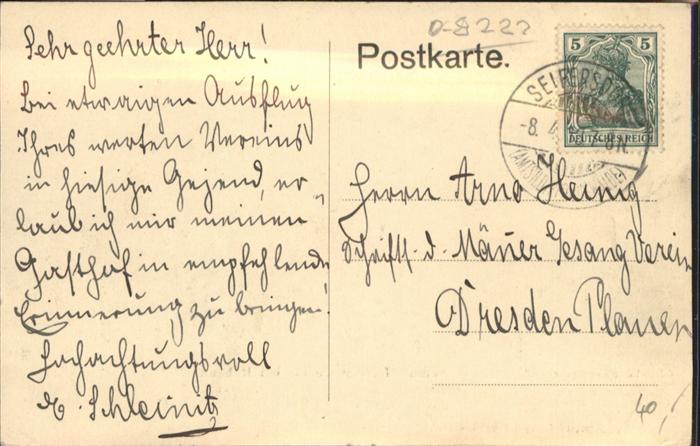 Sehr geehrter Herr!
Bei etwaigen Ausflug
Ihres werten Vereins
in hiesige Gegend, er
laub ich mir meinen
Gasthof in empfehlende
Erinnerung zu bringen!
Hochachtungsvoll
E. Schleinitz
D-8222
Postkarte.
5 5
DEUTSCHES REICH
SEIFERSDORF
-8.
8-N.
Herrn Arno Heinig
Schriff. d. Männer Gesang Verein
Dresden Plauen
40,-